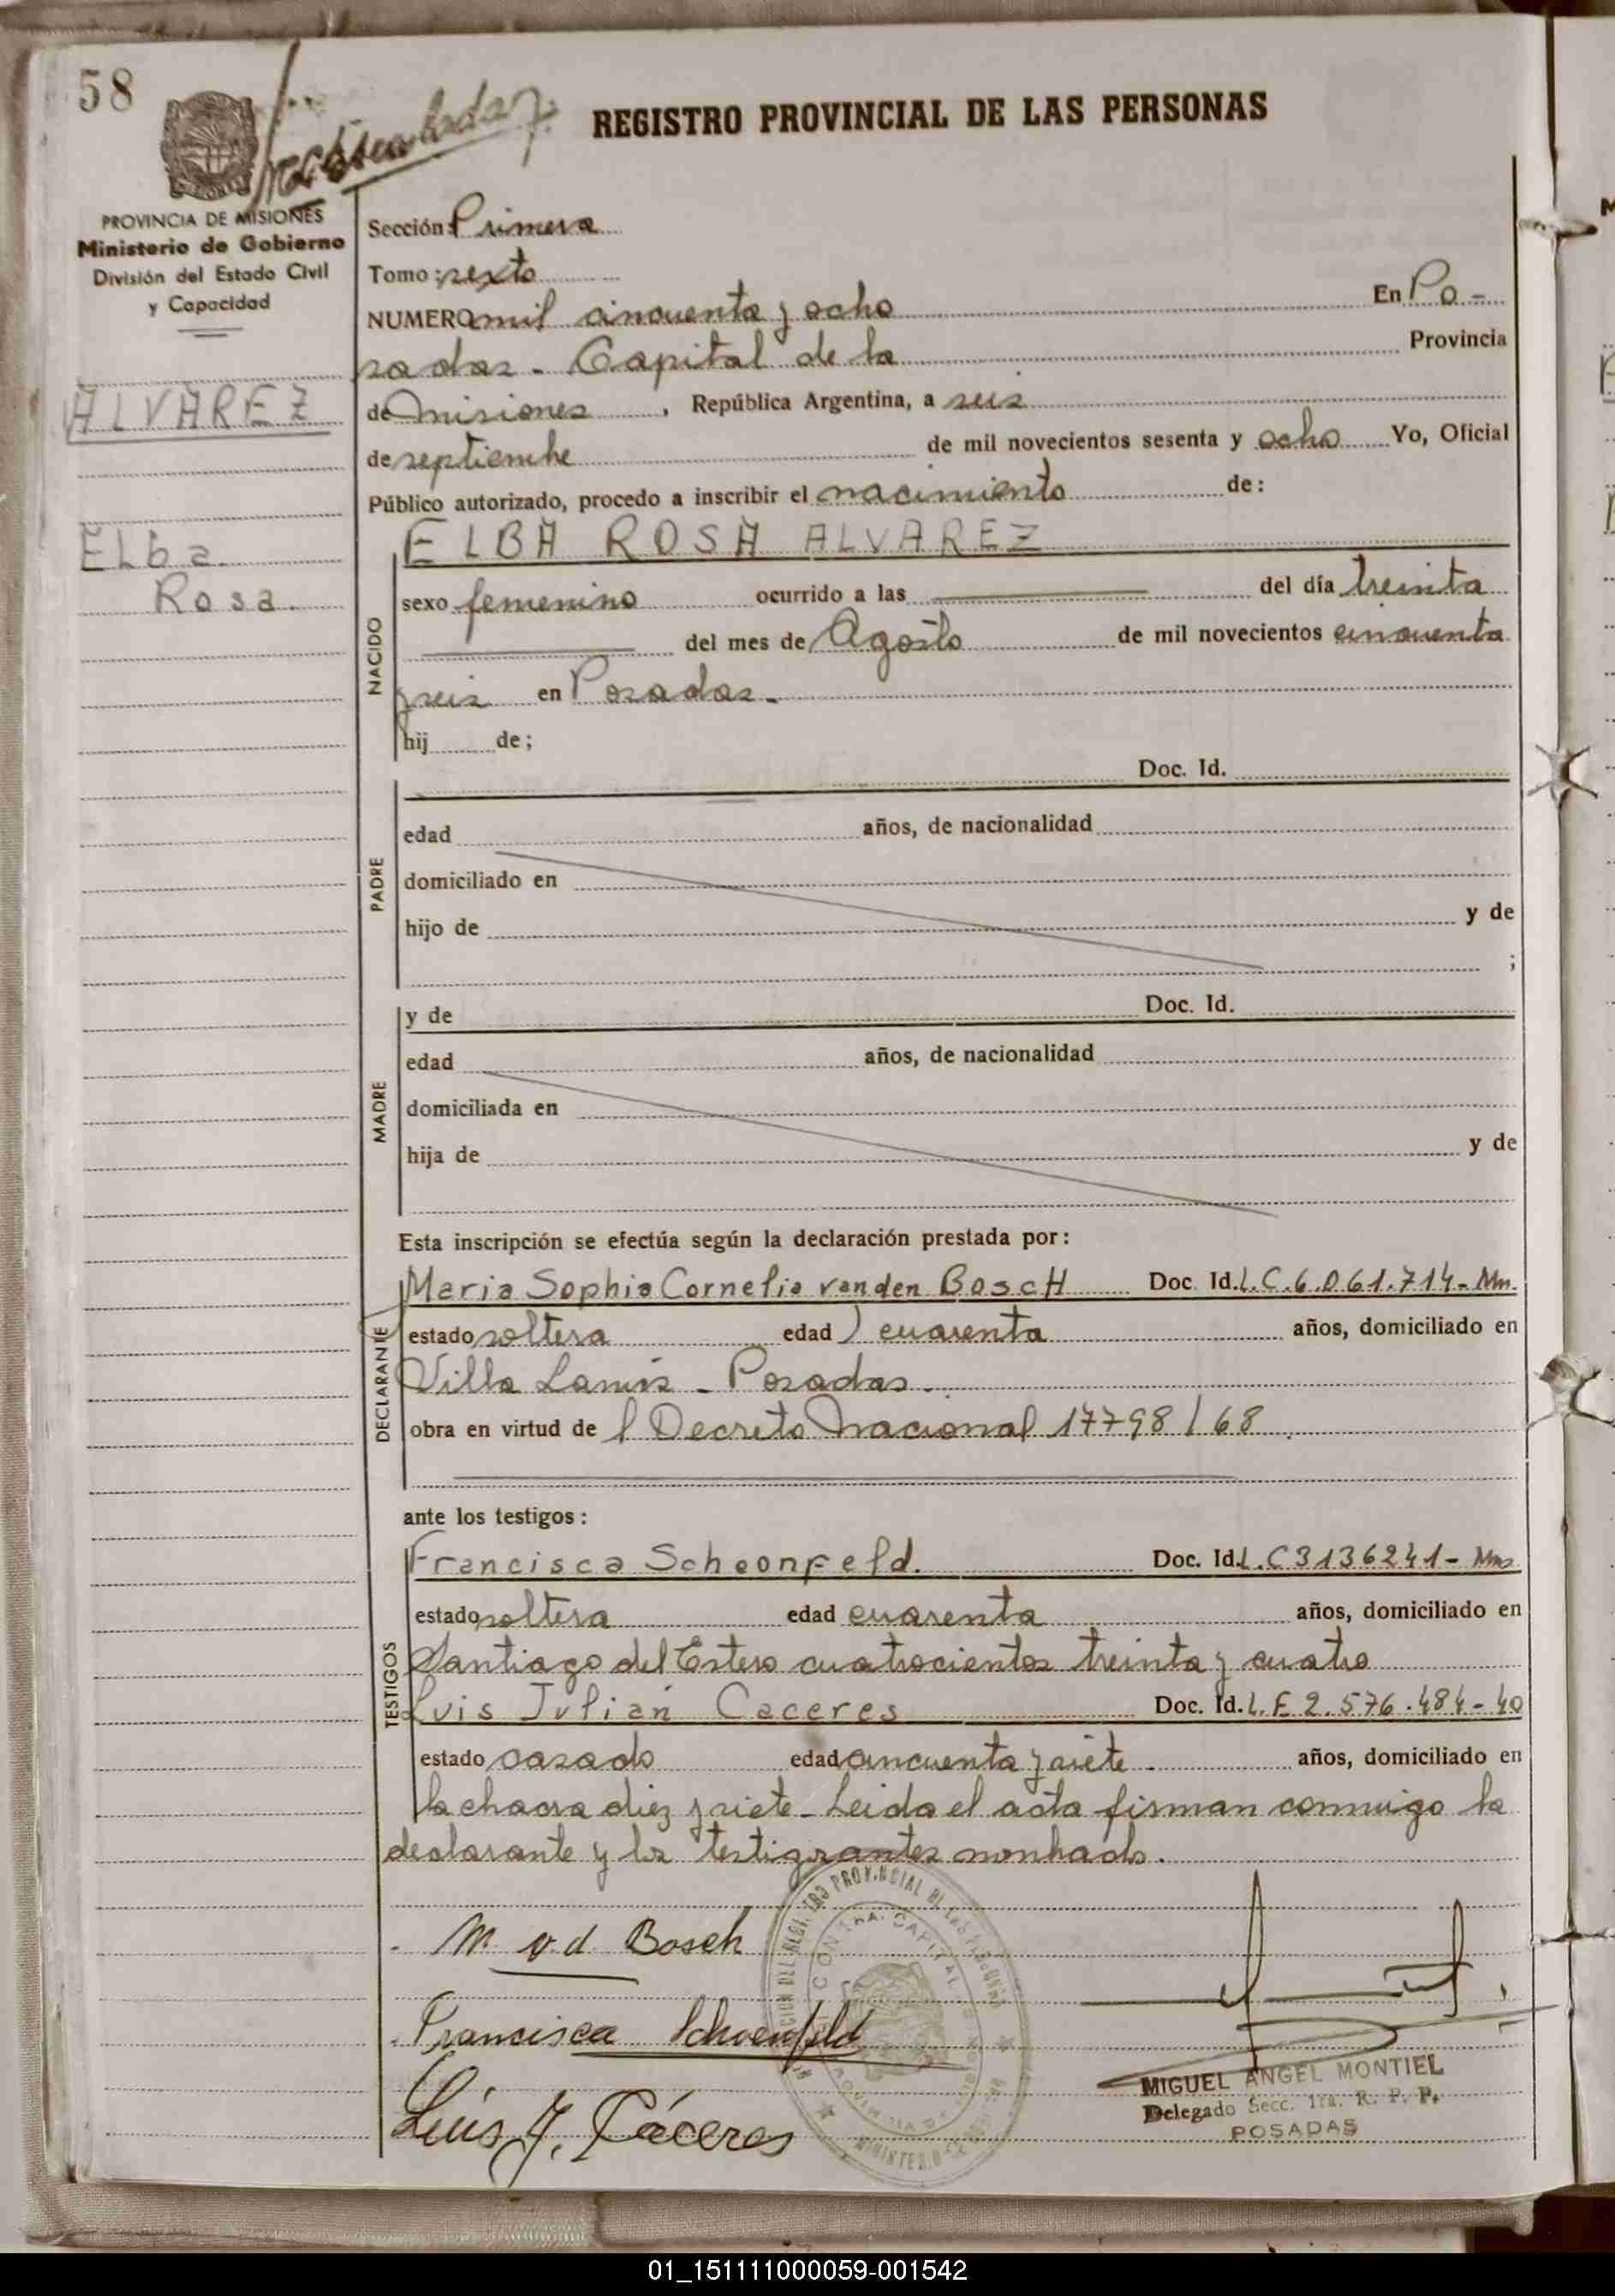 58
REGISTRO PROVINCIAL DE LAS PERSONAS
PROVINCIA DE MISIONES
Ministerio de Gobierno
División del Estado Civil
y Capacidad
Sección: Primera
Tomo: sexto
NUMERO mil cincuenta y ocho En Po-
sadas - Capital de la Provincia
ALVAREZ
de Misiones, República Argentina, a seis
de septiembre de mil novecientos sesenta y ocho Yo, Oficial
Público autorizado, procedo a inscribir el nacimiento de:
Elba
Rosa.
NACIDO
ELBA ROSA ALVAREZ
sexo femenino ocurrido a las del día treinta
del mes de Agosto de mil novecientos cincuenta
y seis en Posadas.-
hij de;
PADRE
Doc. Id.
edad años, de nacionalidad
domiciliado en
hijo de y de
;
MADRE
y de Doc. Id.
edad años, de nacionalidad
domiciliada en
hija de y de
Esta inscripción se efectúa según la declaración prestada por:
DECLARANTE
Maria Sophia Cornelia vanden BoscH Doc. Id. L.C.6.061.714-Mn.
estado soltera edad cuarenta años, domiciliado en
Villa Lanús - Posadas.
obra en virtud de l Decreto Nacional 17798/68.
ante los testigos:
TESTIGOS
Francisca Schoonfeld. Doc. Id. L.C3136241- Mns
estado soltera edad cuarenta años, domiciliado en
Santiago del Estero cuatrocientos treinta y cuatro
Luis Julián Caceres Doc. Id. L.E 2.576.484-40
estado casado edad cincuenta y siete. años, domiciliado en
la chacra diez y siete - Leida el acta firman conmigo la
declarante y los
M v.d. Bosch
Francisca Schoenfeld
Luis J. Cáceres
MIGUEL ANGEL MONTIEL
Delegado Secc. 1ra. R. P. P.
POSADAS
01_151111000059-001542